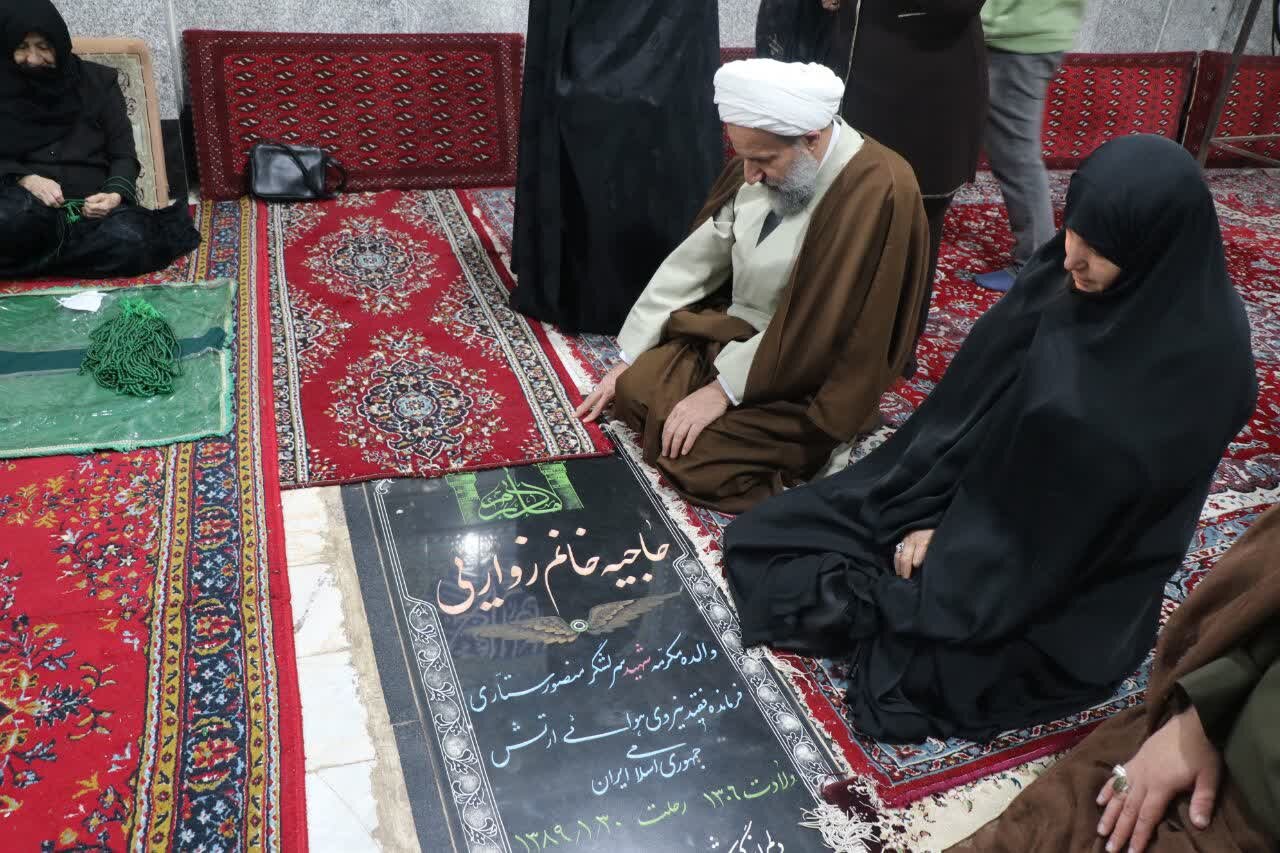 مادرم
حاجیه خانم زواریی
والده مکرمه شهید سرلشگر منصور ستاری
فرمانده فقید نیروی هوائی ارتش
جمهوری اسلامی ایران
ولادت ۱۳۰۶ رحلت ۱۳۸۹/۱/۳۰